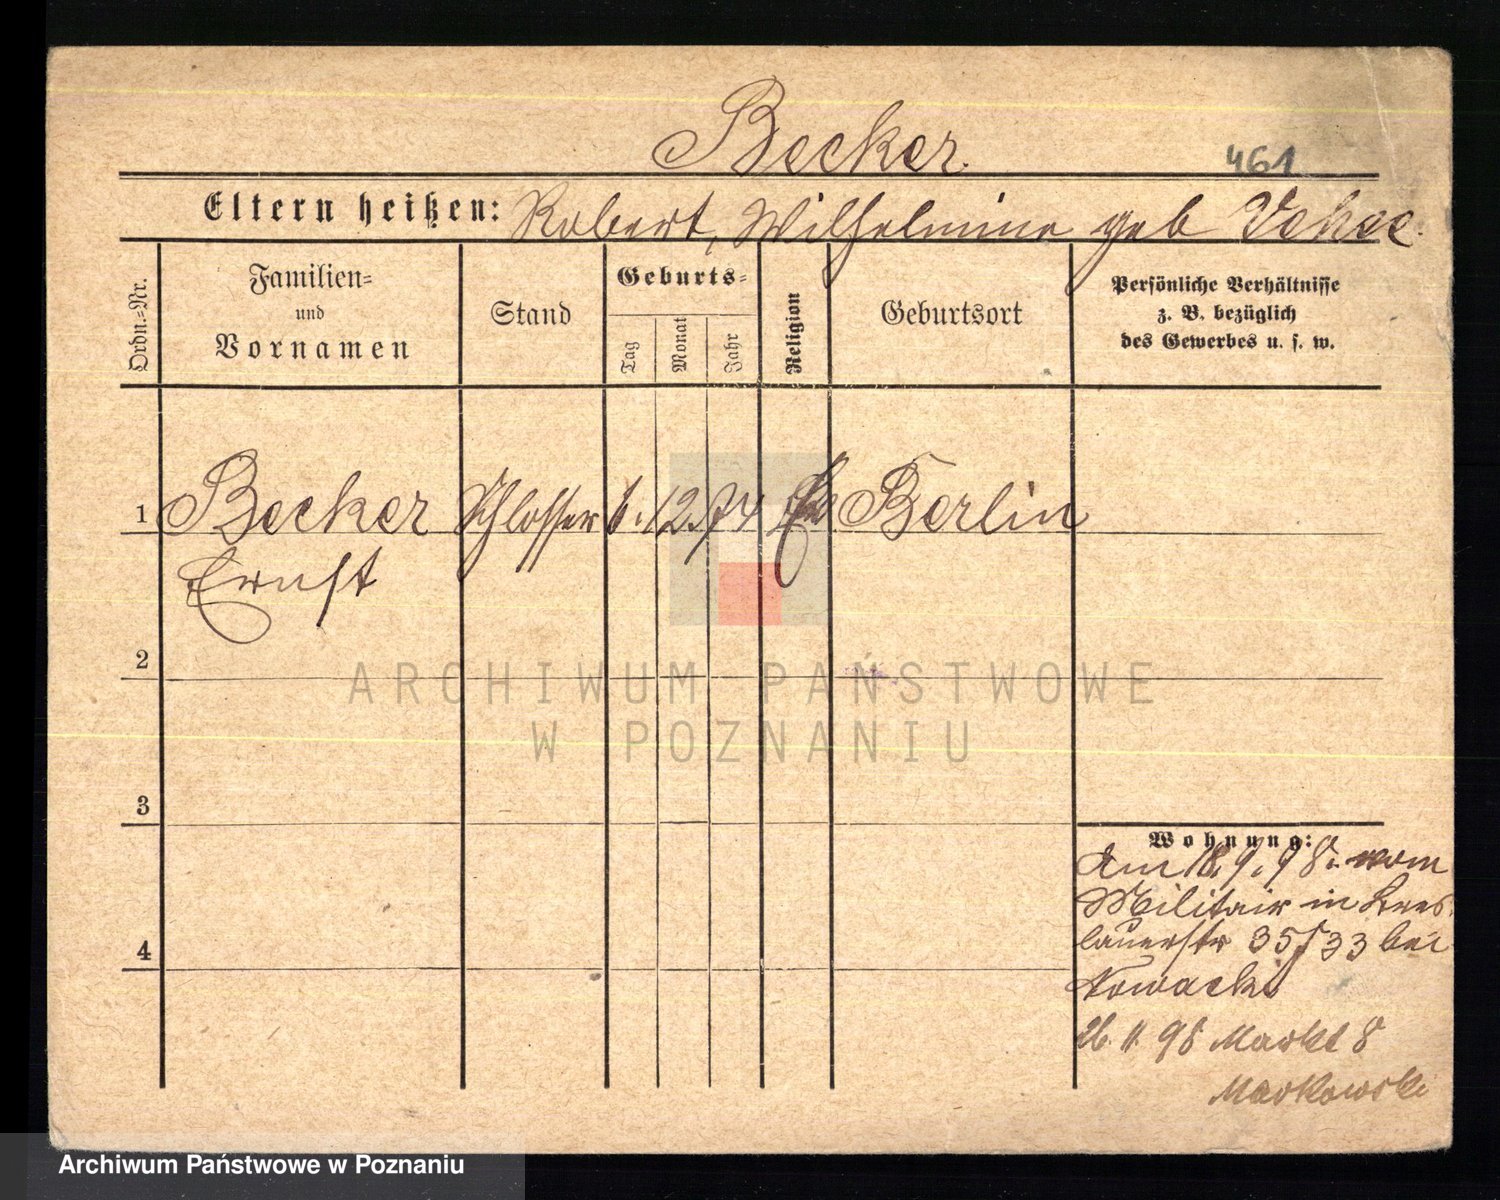 Becker.
461
Eltern heißen: Robert, Wilhelmine geb
Ordn.-Nr.
Familien-
und
Vornamen
Stand
Geburts-
Tag
Monat
Jahr
Religion
Geburtsort
Persönliche Verhältnisse
z. B. bezüglich
des Gewerbes u. s. w.
1 Becker Schlosser 6. 12. 74 Berlin
Ernst
2
ARCHIWUM PAŃSTWOWE
W POZNANIU
3
Wohnung:
Am 18. 9. 98. vom
Militair in Bres-
lauerstr 35/33 bei
Nowacki
26. 11. 98 Markt 8
Markowski
4
Archiwum Państwowe w Poznaniu